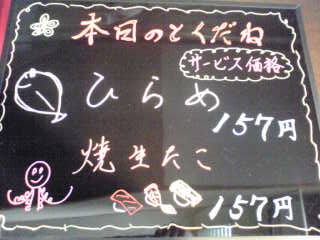 本日のとくだね
サービス価格
ひらめ
157円
焼生たこ
157円